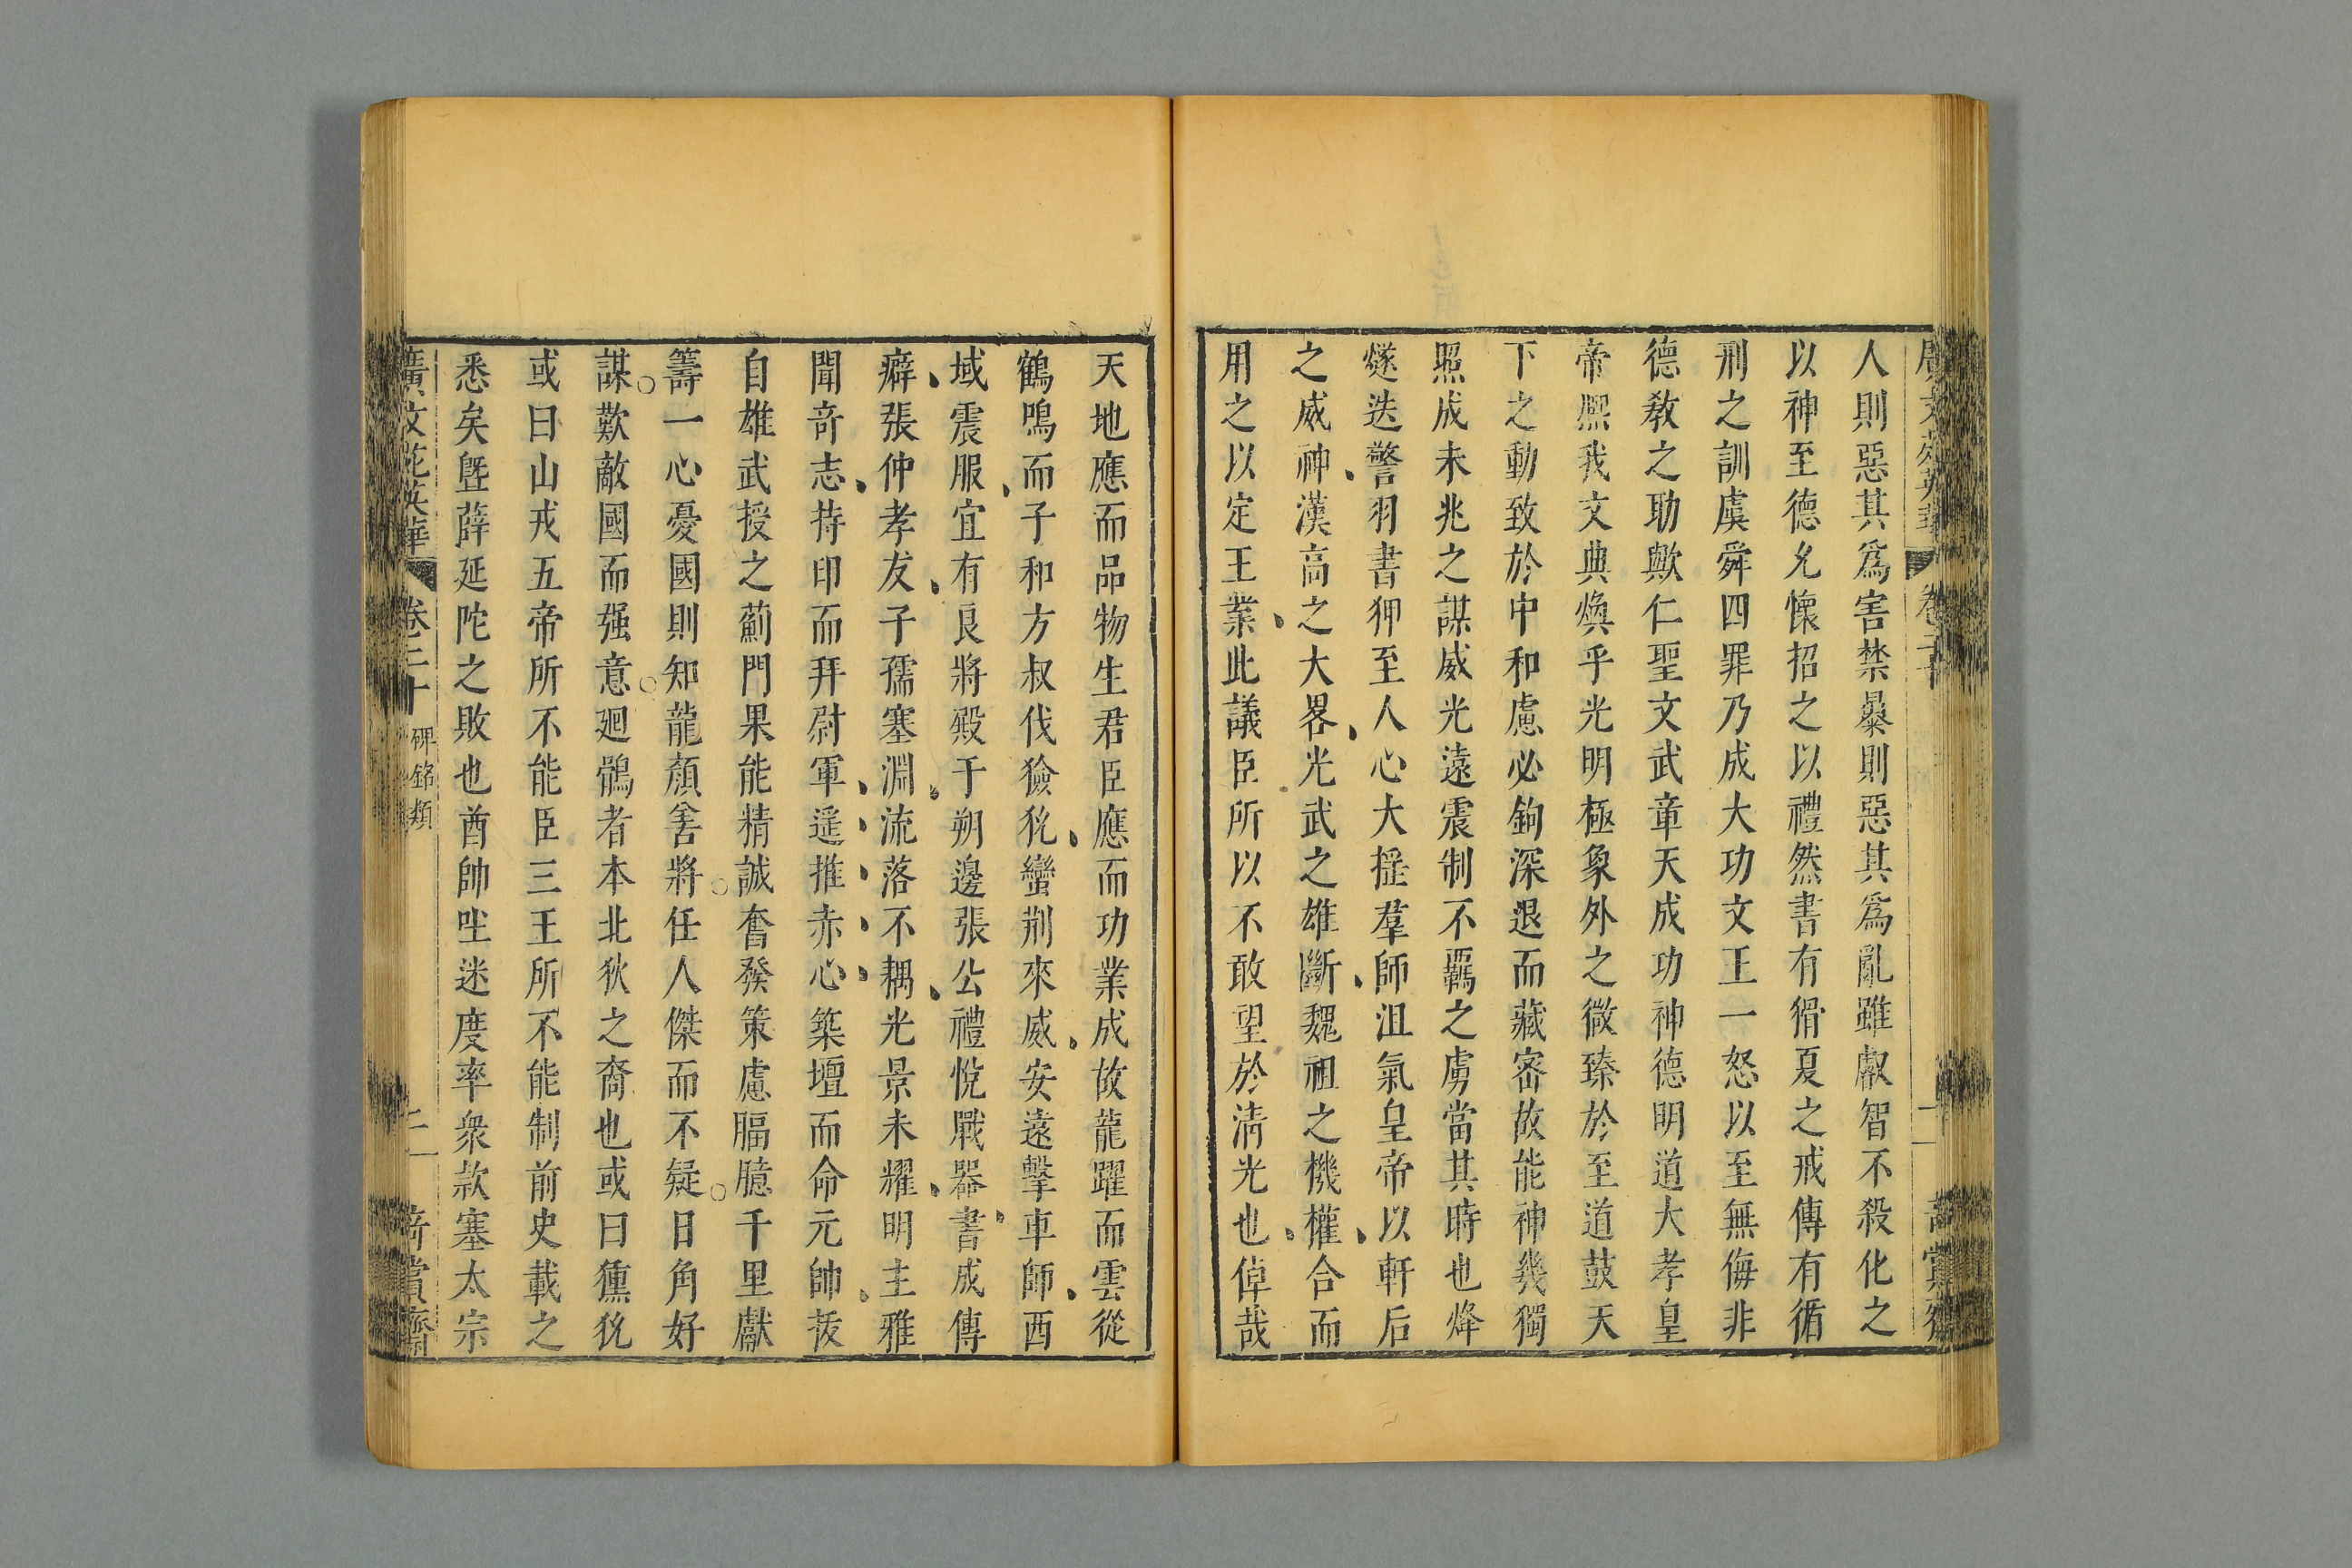 人則惡其爲害禁暴則惡其爲亂雖叡智不殺化之
以神至德允懷招之以禮然書有猾夏之戒傳有循
刑之訓虞舜四罪乃成大功文王一怒以至無侮非
德敎之助歟仁聖文武章天成功神德明道大孝皇
帝熈我文典煥乎光明極象外之微臻於至道鼓天
下之動致於中和慮必鉤深退而藏密故能神幾獨
照成未兆之謀威光遠震制不羈之虜當其時也烽
燧迭警羽書狎至人心大搖羣師沮氣皇帝以軒后
之威神漢高之大畧光武之雄斷魏祖之機權合而
用之以定王業此議臣所以不敢望於淸光也倬哉
天地應而品物生君臣應而功業成故龍躍而雲從
鶴鳴而子和方叔伐獫狁蠻荆來威安遠擊車師西
域震服宜有良將殿于朔邊張公禮悅戰器書成傳
癖張仲孝友子孺塞淵流落不耦光景未耀明主雅
聞竒志持印而拜尉軍遥推赤心築壇而命元帥拔
自雄武授之薊門果能精誠奮發策慮腷臆千里獻
籌一心憂國則知龍顏善將任人傑而不疑日角好
謀歎敵國而强意廻鶻者本北狄之裔也或曰獯狁
或曰山戎五帝所不能臣三王所不能制前史載之
悉矣曁薛延陀之敗也酋帥吐迷度率衆款塞太宗
廣文苑英華 卷三十 碑銘類 二 竒賞齋